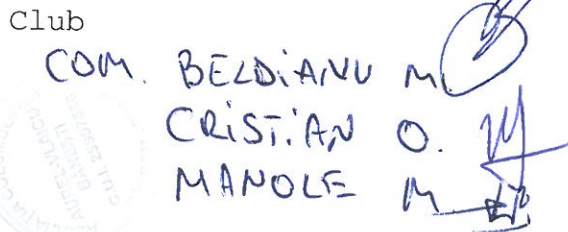 Club
COM. BELDIANU M.
CRISTIAN O.
MANOLE M